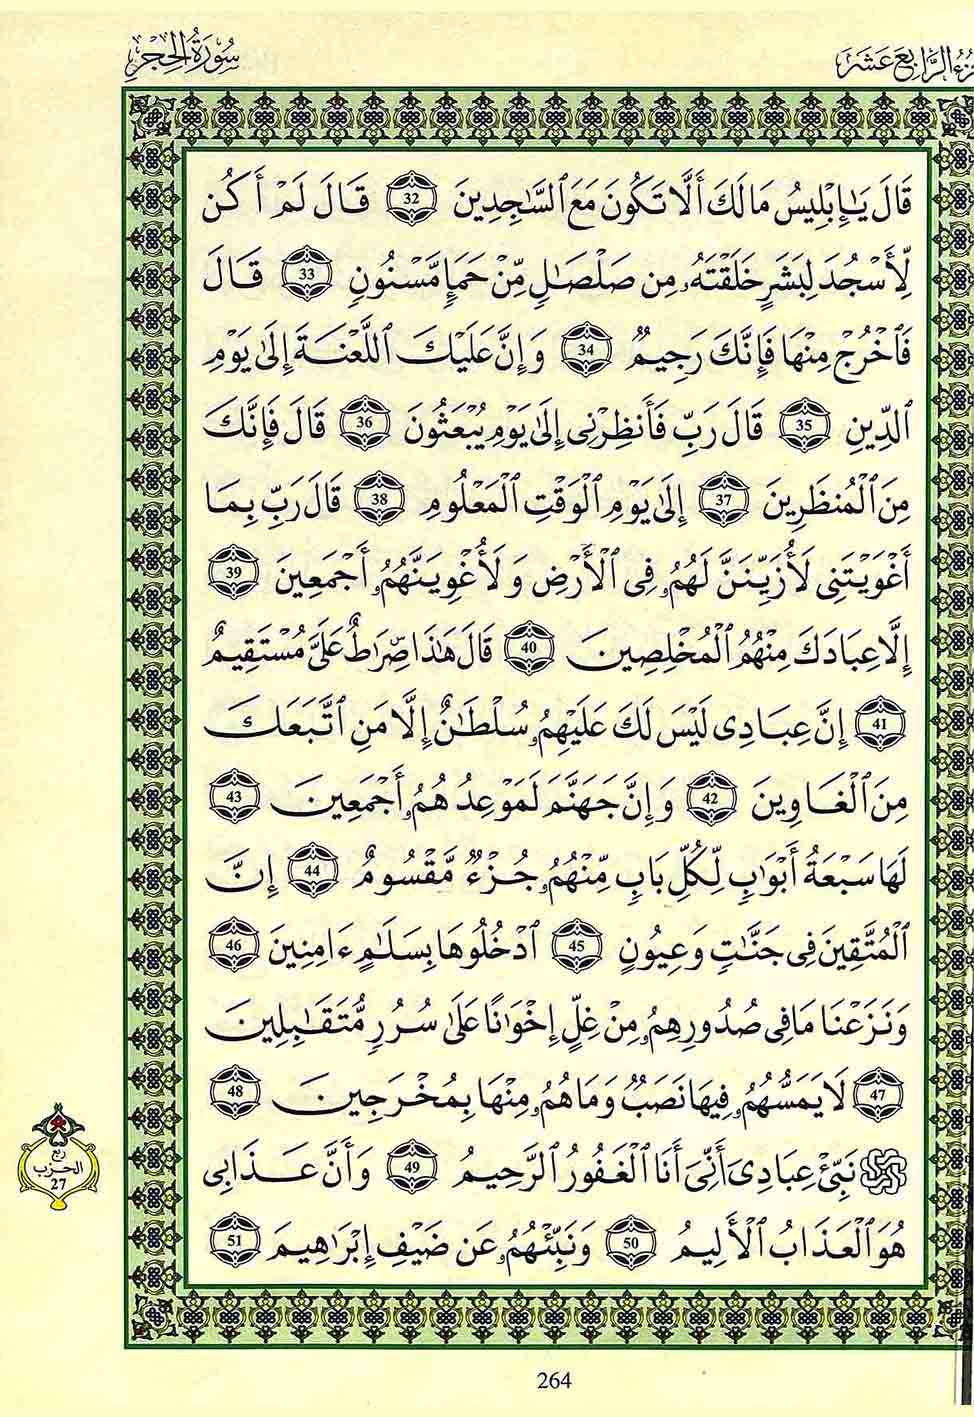 الجزء الرابع عشر
سورة الحجر
قَالَ يَٰٓإِبْلِيسُ مَا لَكَ أَلَّا تَكُونَ مَعَ ٱلسَّٰجِدِينَ 32 قَالَ لَمْ أَكُن
لِّأَسْجُدَ لِبَشَرٍ خَلَقْتَهُۥ مِن صَلْصَٰلٍ مِّنْ حَمَإٍ مَّسْنُونٍ 33 قَالَ
فَٱخْرُجْ مِنْهَا فَإِنَّكَ رَجِيمٌ 34 وَإِنَّ عَلَيْكَ ٱللَّعْنَةَ إِلَىٰ يَوْمِ
ٱلدِّينِ 35 قَالَ رَبِّ فَأَنظِرْنِى إِلَىٰ يَوْمِ يُبْعَثُونَ 36 قَالَ فَإِنَّكَ
مِنَ ٱلْمُنظَرِينَ 37 إِلَىٰ يَوْمِ ٱلْوَقْتِ ٱلْمَعْلُومِ 38 قَالَ رَبِّ بِمَا
أَغْوَيْتَنِى لَأُزَيِّنَنَّ لَهُمُۥ فِى ٱلْأَرْضِ وَلَأُغْوِيَنَّهُمُۥ أَجْمَعِينَ 39
إِلَّا عِبَادَكَ مِنْهُمُ ٱلْمُخْلِصِينَ 40 قَالَ هَٰذَا صِرَٰطٌ عَلَىَّ مُسْتَقِيمٌ
41 إِنَّ عِبَادِى لَيْسَ لَكَ عَلَيْهِمُۥ سُلْطَٰنٌ إِلَّا مَنِ ٱتَّبَعَكَ
مِنَ ٱلْغَاوِينَ 42 وَإِنَّ جَهَنَّمَ لَمَوْعِدُهُمُۥ أَجْمَعِينَ 43
لَهَا سَبْعَةُ أَبْوَٰبٍ لِّكُلِّ بَابٍ مِّنْهُمُۥ جُزْءٌ مَّقْسُومٌ 44 إِنَّ
ٱلْمُتَّقِينَ فِى جَنَّٰتٍ وَعِيُونٍ 45 ٱدْخُلُوهَا بِسَلَٰمٍ ءَامِنِينَ 46
وَنَزَعْنَا مَا فِى صُدُورِهِمُۥ مِنْ غِلٍّ إِخْوَٰنًا عَلَىٰ سُرُرٍ مُّتَقَٰبِلِينَ
47 لَا يَمَسُّهُمُۥ فِيهَا نَصَبٌ وَمَا هُمُۥ مِنْهَا بِمُخْرَجِينَ 48
نَبِّئْ عِبَادِىَ أَنِّىَ أَنَا ٱلْغَفُورُ ٱلرَّحِيمُ 49 وَأَنَّ عَذَابِى
هُوَ ٱلْعَذَابُ ٱلْأَلِيمُ 50 وَنَبِّئْهُمُۥ عَن ضَيْفِ إِبْرَٰهِيمَ 51
ربع
الحزب
27
264